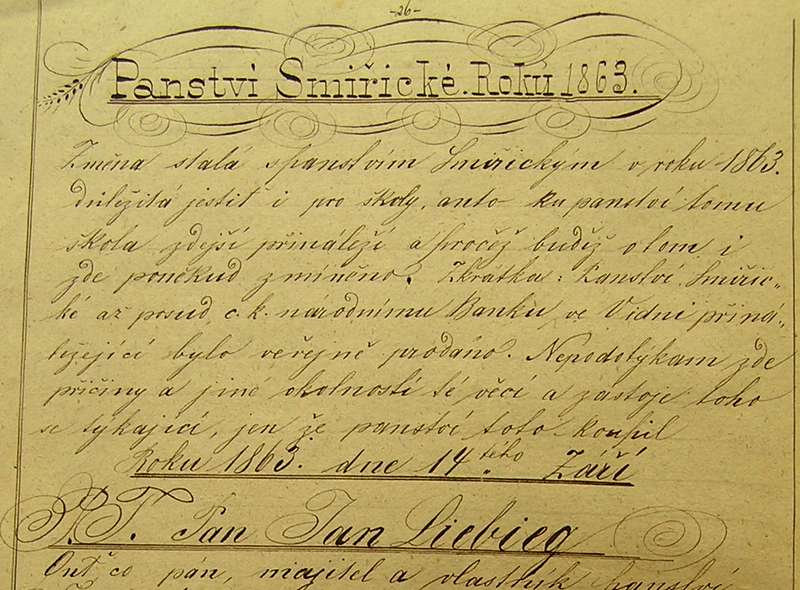 -26-
Panství Smiřické. Roku 1863.
Změna stalá s panstvím Smiřickým v roku 1863.
důležitá jestiť i pro školy, anto ku panství tomu
škola zdejší přináleží a pročež budiž o tom i
zde poněkud zmíněno. Zkrátka: Panství Smiřic-
ké až posud c. k. národnímu Banku ve Vídni přiná-
ležející bylo veřejně prodáno. Nepodotýkam zde
příčiny a jiné okolností té věcí a zástoje toho
se týkající, jen že panství toto koupil
Roku 1863. dne 14tého Září
P. T. Pan Jan Liebieg
Onť co pán, majitel a vlastník panství